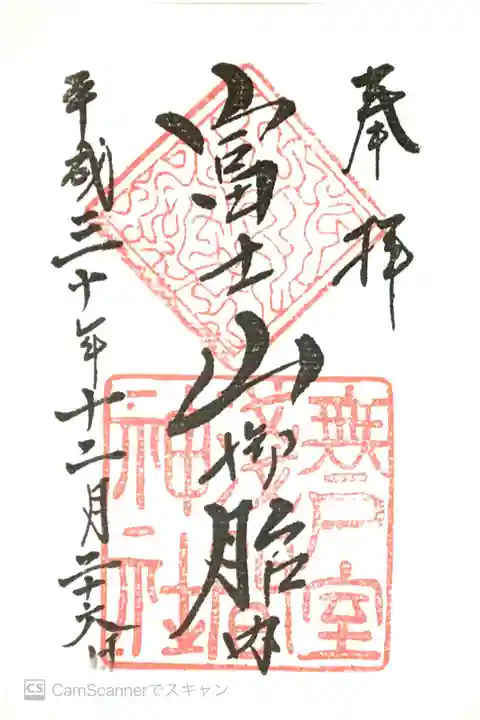 奉拝
富士山御胎内
無戸室
浅間
神社
平成三十年十二月二十六日
CS CamScannerでスキャン